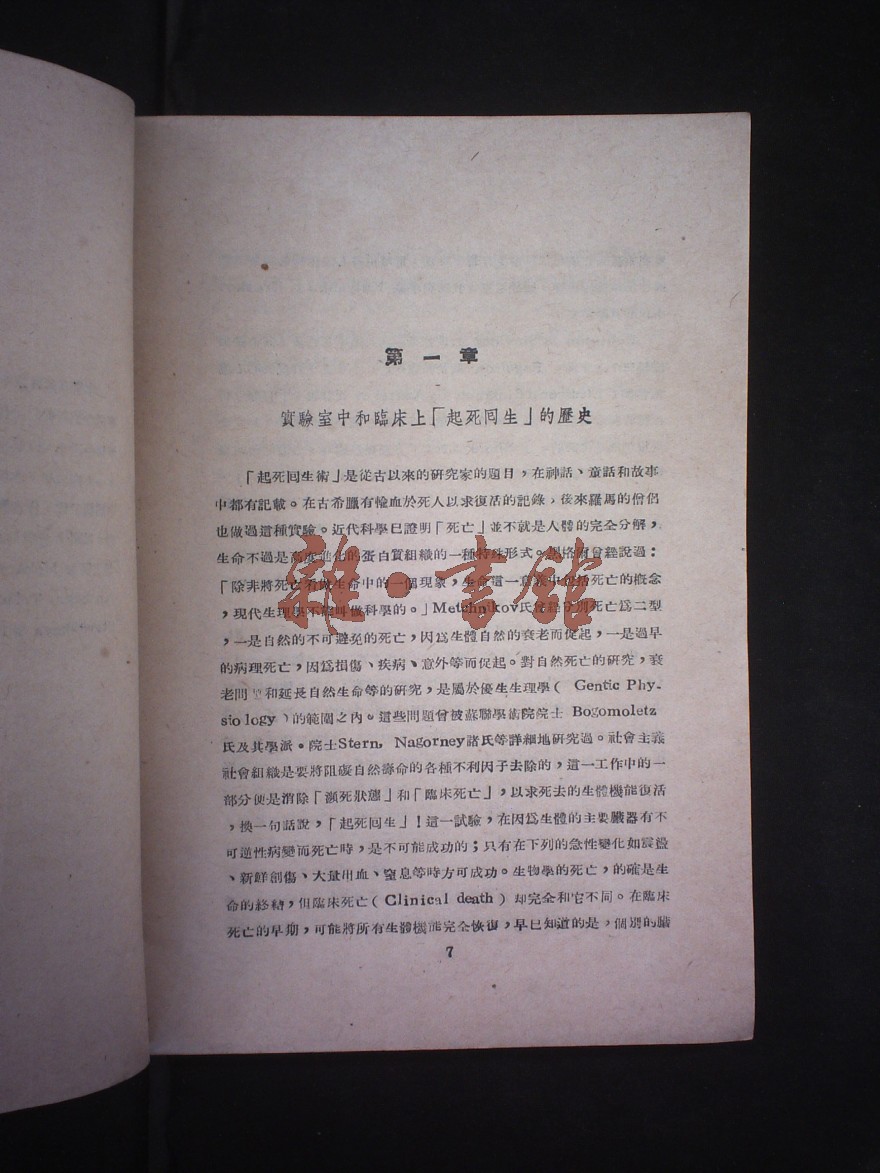 第一章
實驗室中和臨床上「起死囘生」的歷史
「起死囘生術」是從古以來的研究家的題目,在神話、童話和故事
中都有記載。在古希臘有輸血於死人以求復活的記錄,後來羅馬的僧侶
也做過這種實驗。近代科學已證明「死亡」並不就是人體的完全分解,
生命不過是高度進化的蛋白質組織的一種特殊形式。恩格爾曾經說過:
「除非將死亡看做生命中的一個現象,生命這一意義中包括死亡的概念
,現代生理學不能叫做科學的。」Metchnikov氏曾經分別死亡爲二型
,一是自然的不可避免的死亡,因爲生體自然的衰老而促起,一是過早
的病理死亡,因爲損傷、疾病、意外等而促起。對自然死亡的研究,衰
老問 和延長自然生命等的研究,是屬於優生生理學( Gentic Phy-
sio logy )的範圍之內。這些問題曾被蘇聯學術院院士 Bogomoletz
氏及其學派。院士Stern, Nagorney諸氏等詳細地研究過。社會主義
社會組織是要將阻礙自然壽命的各種不利因子去除的,這一工作中的一
部分便是消除「瀕死狀態」和「臨床死亡」,以求死去的生體機能復活
,換一句話說,「起死囘生」!這一試驗,在因爲生體的主要臟器有不
可逆性病變而死亡時,是不可能成功的;只有在下列的急性變化如震盪
、新鮮創傷、大量出血、窒息等時方可成功。生物學的死亡,的確是生
命的終結,但臨床死亡(Clinical death)却完全和它不同。在臨床
死亡的早期,可能將所有生體機能完全恢復,早已知道的是,個別的臟
7
雜·書館